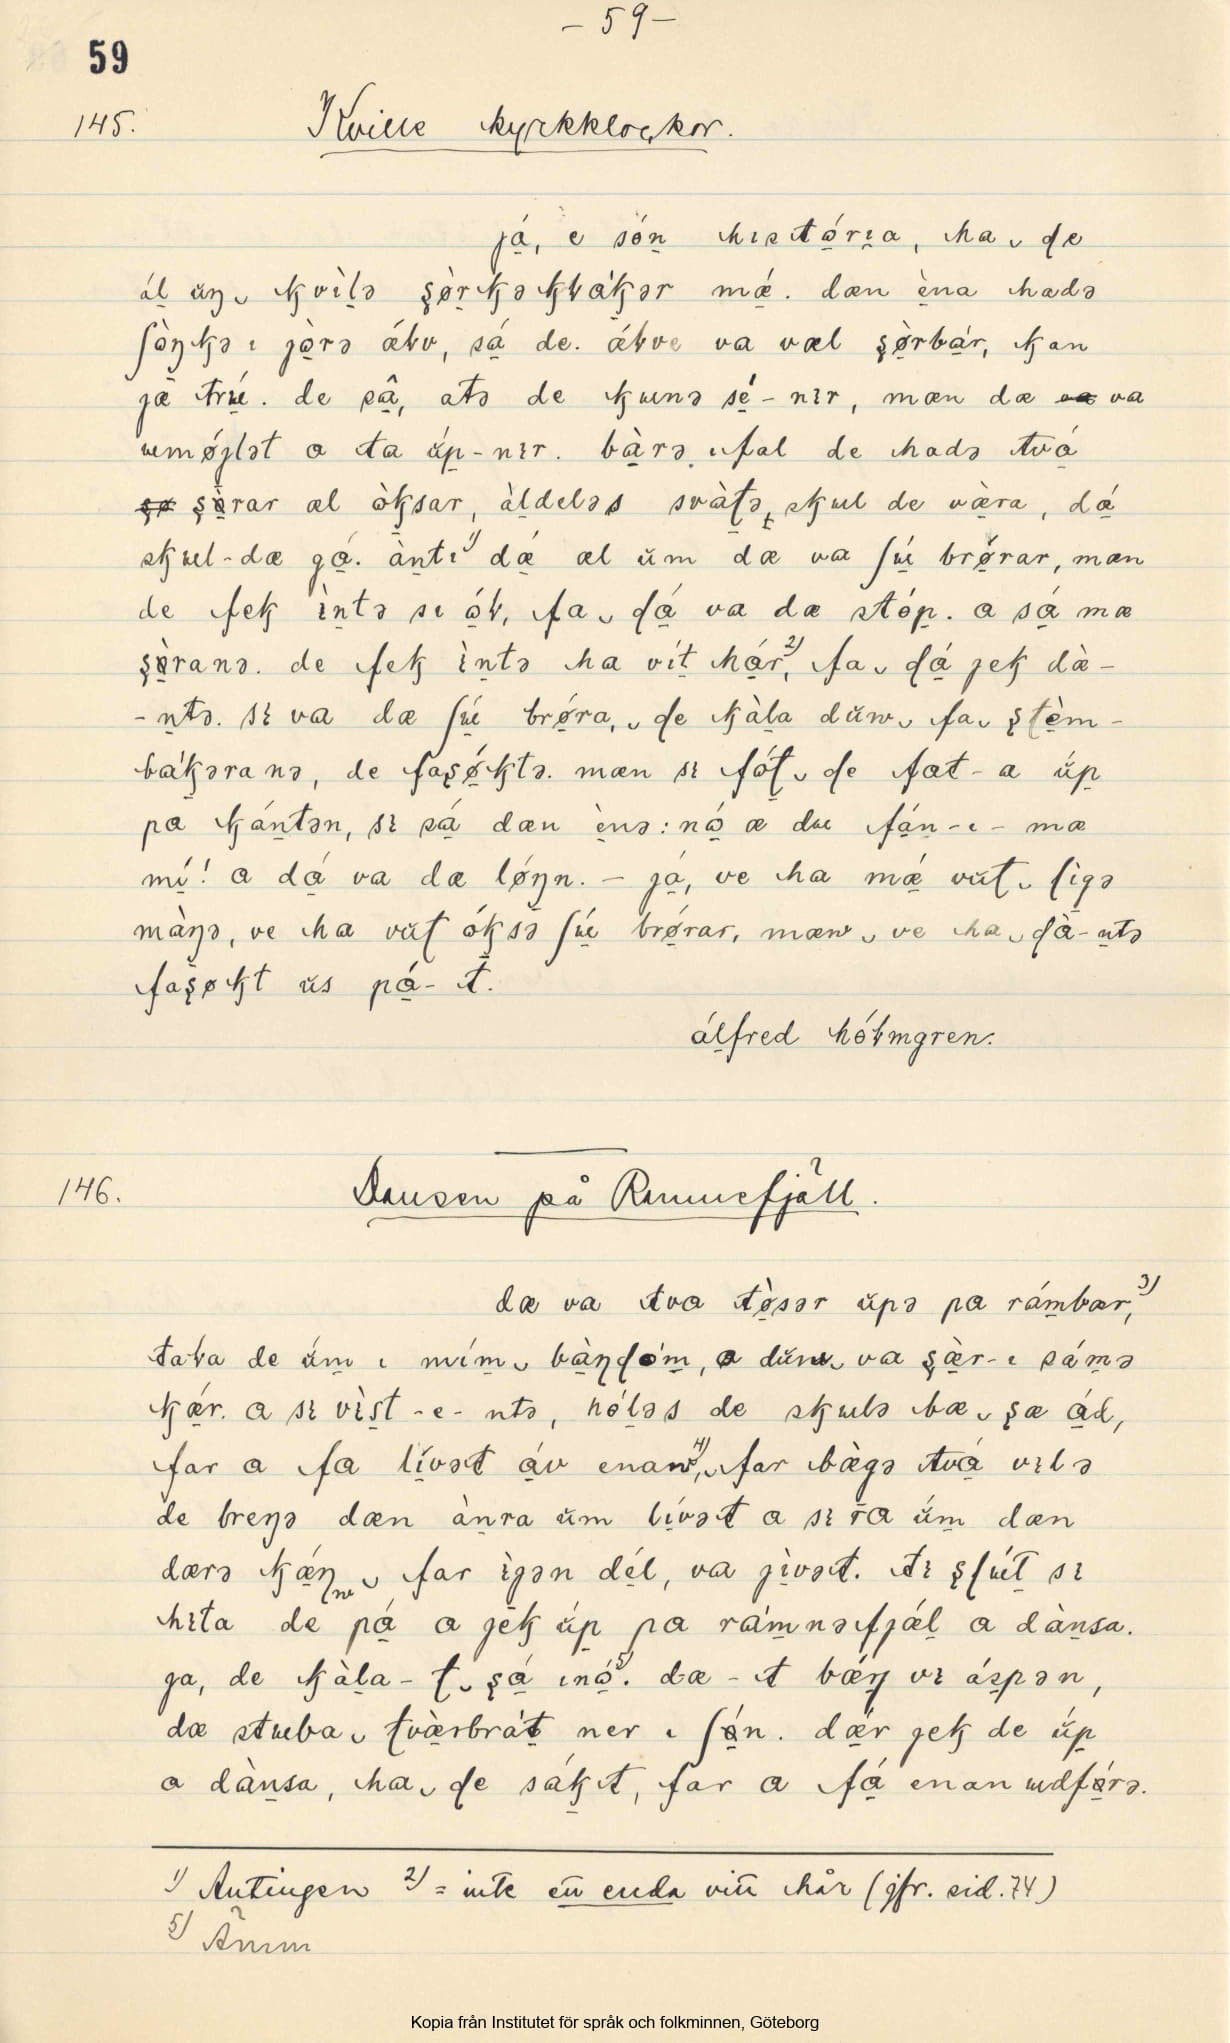 – 59 –
59
145. Kville kyrkklockor.
já, e són história, ha de
ál ŭŋ kvìlə şø̀rkəkɫákər mǽ. dæn èna hadə
ʃòŋkə ı jòrə ǽɫv, sá de. ǽɫve va væl şø̀rbár, kan
jæ trɯ́. de sâ, atə de kɯnə sé-nır, mæn dæ va
ɯmǿjlət a ta úp-nır. bàrə fal de hadə tvá
şø̀rar æl òksar, àldeləs svàtə, skɯl de væ̀ra, dǽ
skɯl-dæ gá. àntı¹⁾ dǽ æl ŭm dæ va ʃɯ́ brǿrar, mæn
de fek ìntə sı óɫ, fa dá va dæ stóp. a sá mæ
şø̀ranə. de fek ìntə ha vít hár²⁾, fa dá jek dæ̀-
-ntə. sı va dæ ʃɯ́ brǿra, de kàla dŭw fa ştèm-
bákəranə, de faşǿktə. mæn sı fót de fat-a úp
pa kántən, sı sá dæn ènə: nó æ dɯ fán-ı- mæ
mí! a dá va dæ lǿŋn. – já, ve ha mǽ vŭt ligə
màŋə, ve ha vŭt óksə ʃɯ́ brǿrar, mæw ve ha dà-ntə
faşøkt ŭs pá-t.
álfred hóɫmgren.
146. Dansen på Ramnefjäll.
dæ va tva tø̀sər ŭpə pa rámbær,³⁾
taɫa de ŭ́m ı mím bàŋdóm, a dŭw va şæ̀r-ı sámə
kǽr. a sı vìst-e-ntə, hóləs de skɯlə bæ şæ ád,
far a fa lívət áv enaw⁴⁾, far bægə tvá vılə
de breŋə dæn ànra ŭm lívət a sı ra ŭ́m dæn
dærə kǽŋ far ìgən dél, va jìvət. tı şlɯ́t sı
hıta de pá a jek úp pa rámnəfjǽl a dànsa.
ja, de kàla-t şá ınó⁵⁾. dæ-t bǽŋ vı áspən,
dæ stɯba tvæ̀rbrát ner ı ʃǿn. dǽr jek de úp
a dànsa, ha de sákt, far a fá enan ɯdfǿrə.
¹⁾ Antingen ²⁾ = inte en enda vitt hår (jfr. sid. 74)
⁵⁾ Ämm
Kopia från Institutet för språk och folkminnen, Göteborg